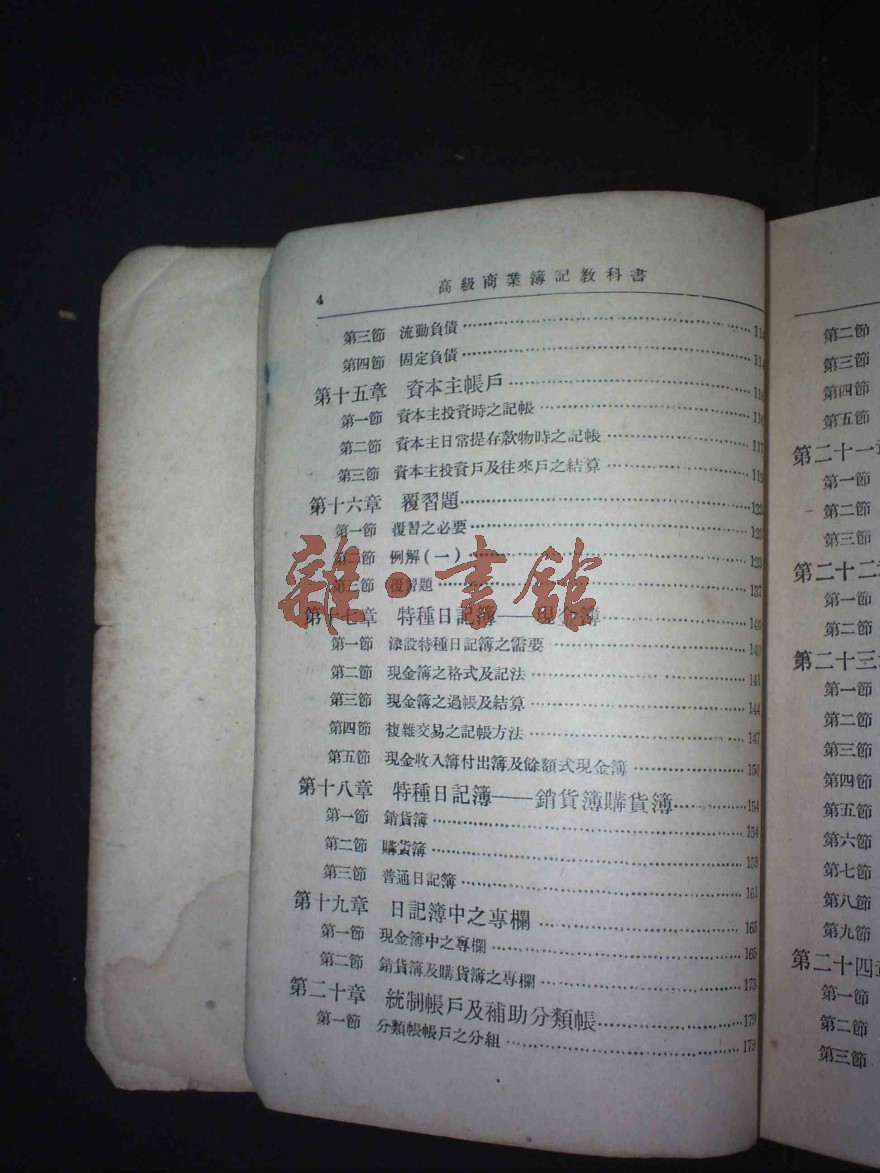 4 高級商業簿記教科書
第三節 流動負債 114
第四節 固定負債 114
第十五章 資本主帳戶 116
第一節 資本主投資時之記帳 116
第二節 資本主日常提存款物時之記帳 117
第三節 資本主投資戶及往來戶之結算 119
第十六章 覆習題 123
第一節 覆習之必要 123
第二節 例解(一) 123
第三節 覆習題 137
第十七章 特種日記簿——現金簿 140
第一節 添設特種日記簿之需要 140
第二節 現金簿之格式及記法 141
第三節 現金簿之過帳及結算 144
第四節 複雜交易之記帳方法 147
第五節 現金收入簿付出簿及餘額式現金簿 150
第十八章 特種日記簿——銷貨簿購貨簿 154
第一節 銷貨簿 154
第二節 購貨簿 159
第三節 普通日記簿 161
第十九章 日記簿中之專欄 165
第一節 現金簿中之專欄 165
第二節 銷貨簿及購貨簿之專欄 173
第二十章 統制帳戶及補助分類帳 179
第一節 分類帳帳戶之分組 179
雜·書館
第二節
第三節
第四節
第五節
第二十一章
第一節
第二節
第三節
第二十二章
第一節
第二節
第二十三章
第一節
第二節
第三節
第四節
第五節
第六節
第七節
第八節
第九節
第二十四章
第一節
第二節
第三節